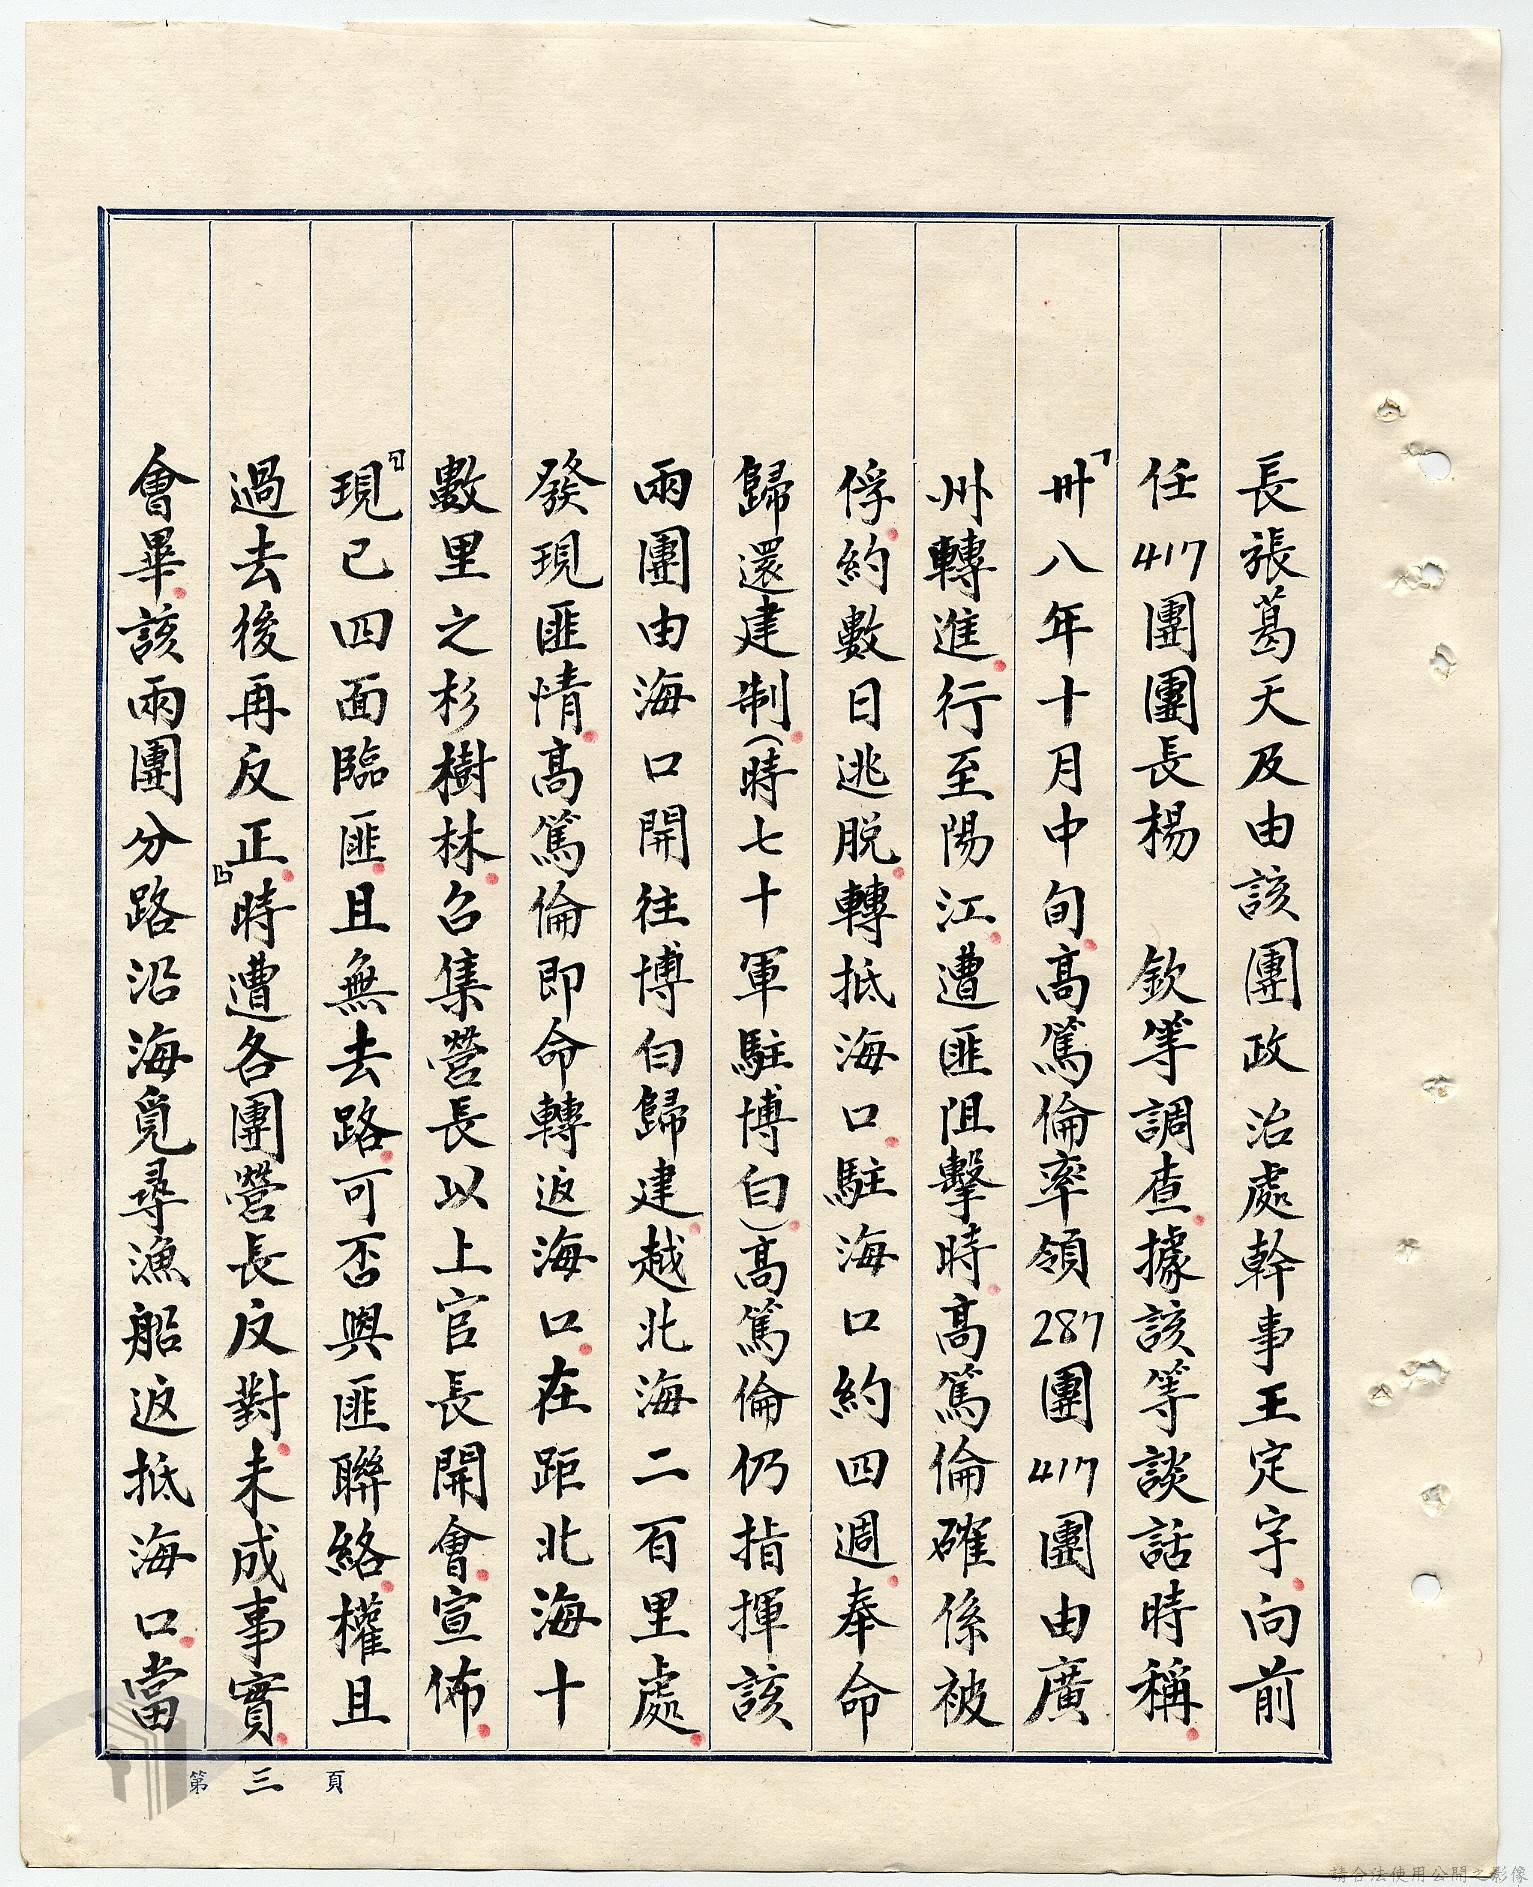 長張葛天及由該團政治處幹事王定宇向前
任417團團長楊　欽等調查據該等談話時稱
「卅八年十月中旬高篤倫率領287團417團由廣
州轉進行至陽江遭匪阻擊時高篤倫確係被
俘約數日逃脫轉抵海口駐海口約四週奉命
歸還建制(時七十軍駐博白)高篤倫仍指揮該
兩團由海口開往博白歸建越北海二百里處
發現匪情高篤倫即命轉返海口在距北海十
數里之杉樹林召集營長以上官長開會宣佈
『現已四面臨匪且無去路可否與匪聯絡權且
過去後再反正』時遭各團營長反對未成事實
會畢該兩團分路沿海覓尋漁船返抵海口當
第三頁
請合法使用公開之影像